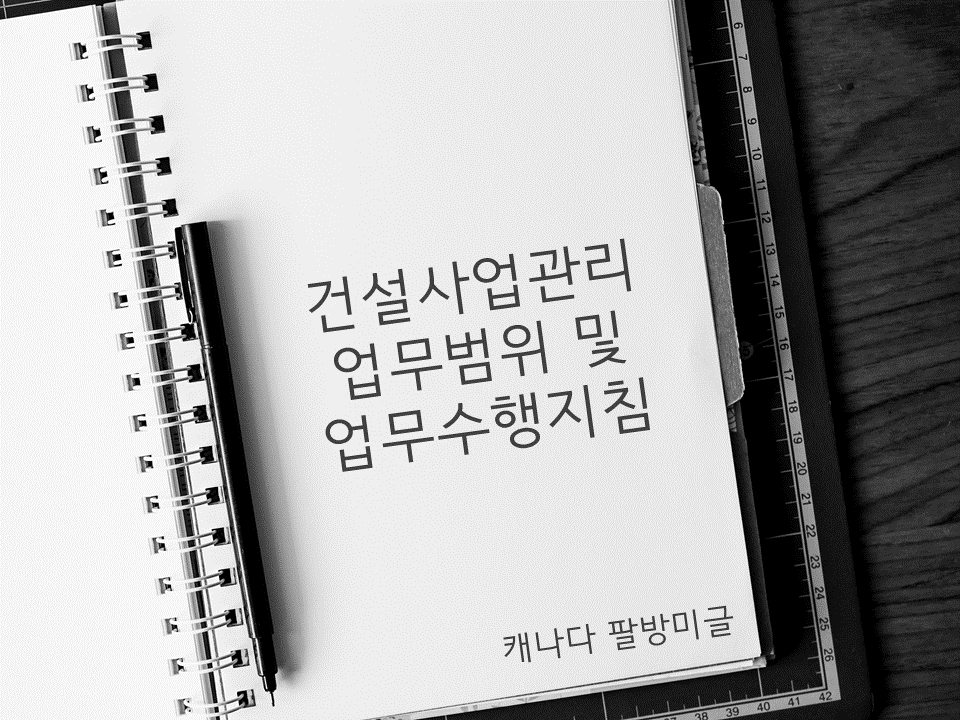 건설사업관리
업무범위 및
업무수행지침
캐나다 팔방미글
6
7
8
9
10
11
12
13
14
15
16
17
18
19
20
21
22
23
24
25
26
38 39 40 41 42